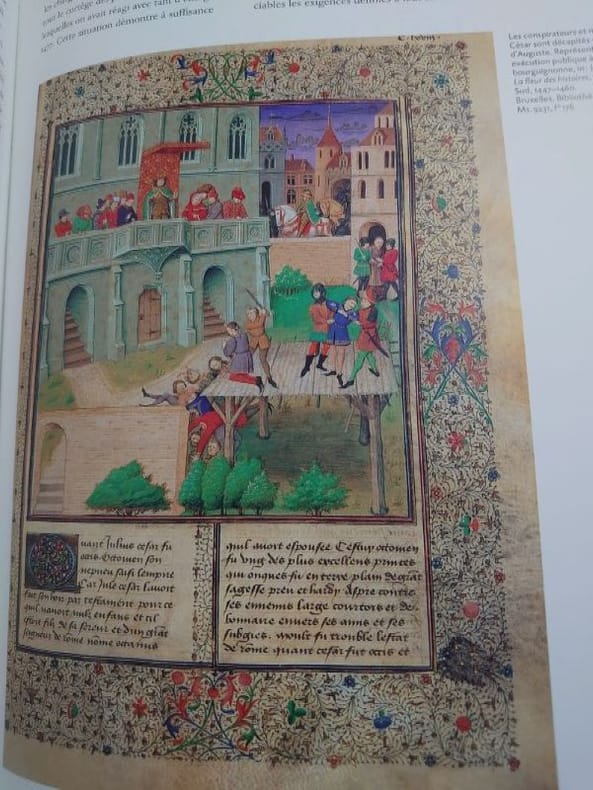 tout le cortège des
lesquelles on avait réagi avec tant d'énergie
1477. Cette situation démontre à suffisance
ciables les exigences définies à
Les conspirateurs et
César sont décapités
d'Auguste. Représent
exécution publique à
bourguignonne, in:
La fleur des histoires,
Sud, 1447-1460.
Bruxelles, Biblioth
Ms. 9231, fº 176
uant Julius cesar fu
occis. Octovien son
nepueu saisi lempire
Car Jule cesar lavoit
fait son hoir par testament pour ce
quil navoit nulz enfans et cil
estoit filz de sa soreur et dun grant
seigneur de rome nome octavius
quil avoit espousee. Cestuy octovien
fu ung des plus excellens princes
qui onques fu en terre plain de grant
sagesse preu et hardy. Aspre contre
ses ennemis large courtois et de-
bonnaire envers ses amis et ses
subgies. moult fu trouble lestat
de rome quant cesar fut occis et